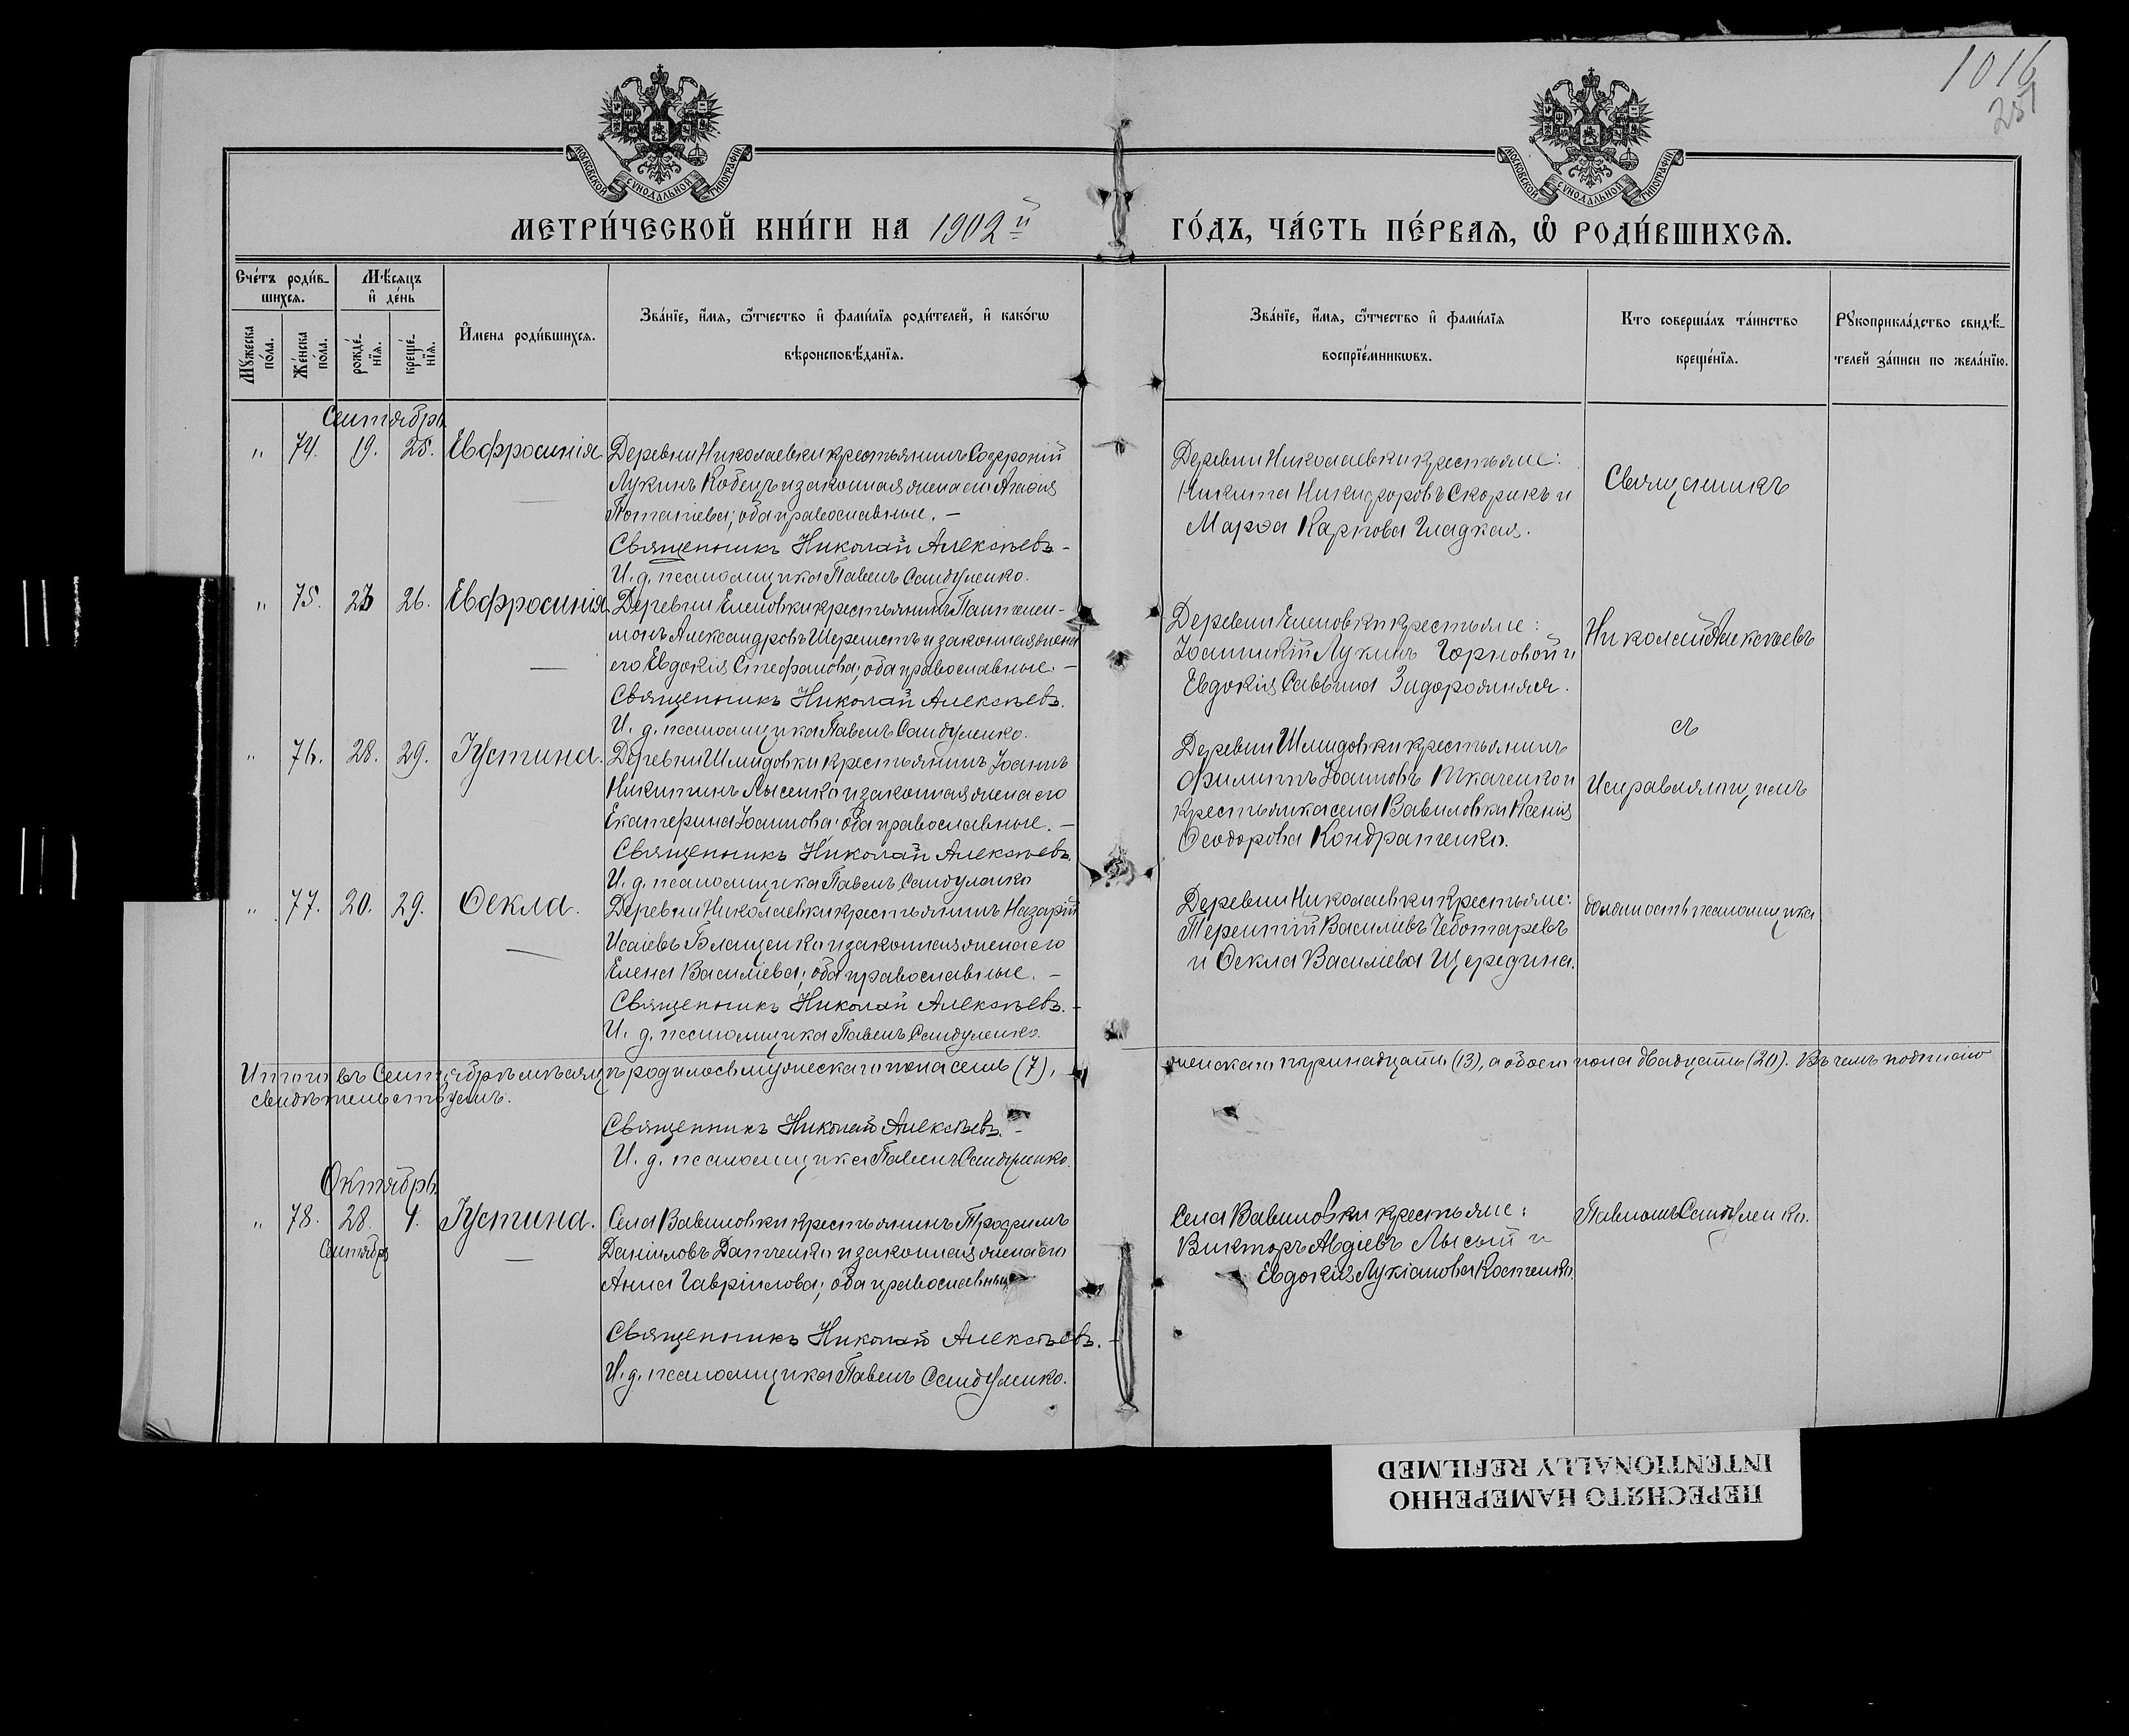 1016
251
МОСКОВСКОЙ СѴНОДАЛЬНОЙ ТИПОГРАФІИ
МОСКОВСКОЙ СѴНОДАЛЬНОЙ ТИПОГРАФІИ
МЕТРИ́ЧЕСКОЙ КНИ́ГИ НА 1902 й
ГО́ДЪ, ЧА́СТЬ ПЕ́РВАѦ, Ѡ РОДИ́ВШИХСѦ.
Сче́тъ роди́в-
шихсѧ.
Мꙋжеска по́ла.
Же́нска по́ла.
Мѣ́сѧцъ
и҆ де́нь
рожде́-
нїѧ.
креще́-
нїѧ.
И҆мена роди́вшихсѧ.
Зва́нїе, и҆́мѧ, ѻ҆́тчество и҆ фами́лїѧ роди́телей, и҆ како́гѡ
вѣроисповѣ́данїѧ.
Зва́нїе, и҆́мѧ, ѻ҆́тчество и҆ фами́лїѧ
воспрїе́мникѡвъ.
Кто соверша́лъ та́инство
креще́нїѧ.
Рꙋкоприкла́дство свидѣ́-
телей за́писи по жела́нїю.
Сентябрь.
" 74. 19. 25. Евфросинія
Деревни Николаевки крестьянинъ Софроній
Лукинъ Кобецъ и законная жена его Агафія
Потапіева; оба православные. –
Священникъ Николай Алексѣевъ –
И. д. псаломщика Павелъ Сандуленко.
Деревни Николаевки крестьяне:
Никита Никифоровъ Скорикъ и
Марѳа Карпова Гладкая.
Священникъ
" 75. 23 26. Евфросинія
Деревни Еленовки крестьянинъ Пантелей-
монъ Александровъ Шереметъ и законная жена
его Евдокія Стефанова; оба православные. –
Священникъ Николай Алексѣевъ.
И. д. псаломщика Павелъ Сандуленко.
Деревни Еленовки крестьяне:
Іоанникій Лукинъ Горновой и
Евдокія Саввина Задорожняя.
Николай Алексѣевъ
съ
" 76. 28. 29. Іустина.
Деревни Шмидовки крестьянинъ Іоаннъ
Никитинъ Лысенко и законная жена его
Екатерина Іоаннова; оба православные. –
Священникъ Николай Алексѣевъ.
И. д. псаломщика Павелъ Сандуленко
Деревни Шмидовки крестьянинъ
Филиппъ Іоанновъ Ткаченко и
крестьянка села Вавиловки Ксенія
Ѳеодорова Кондратенко.
Исправляющимъ
" 77. 20. 29. Ѳекла.
Деревни Николаевки крестьянинъ Назарій
Исаіевъ Блащенко и законная жена его
Елена Василіева; оба православные. –
Священникъ Николай Алексѣевъ. –
И. д. псаломщика Павелъ Сандуленко.
Деревни Николаевки крестьяне:
Терентій Василіевъ Чеботаревъ
и Ѳекла Василіева Щередина.
должность псаломщика
Итого въ Сентябрѣ мѣсяцѣ родилось мужескаго пола семь (7), женскаго тринадцать (13), а обоего пола двадцать (20). Въ чемъ подписью
свидѣтельствуемъ.
Священникъ Николай Алексѣевъ. –
И. д. псаломщика Павелъ Сандуленко.
Октябрь.
" 78. 28. 1. Іустина.
Сентябр
Села Вавиловки крестьянинъ Трофимъ
Даніиловъ Датченко и законная жена его
Анна Гавріилова; оба православные
Священникъ Николай Алексѣевъ. –
И. д. псаломщика Павелъ Сандуленко.
Села Вавиловки крестьяне:
Викторъ Авдіевъ Лысый и
Евдокія Лукіанова Костенко.
Павломъ Сандуленко.
ПЕРЕСНЯТО НАМЕРЕННО
INTENTIONALLY REFILMED